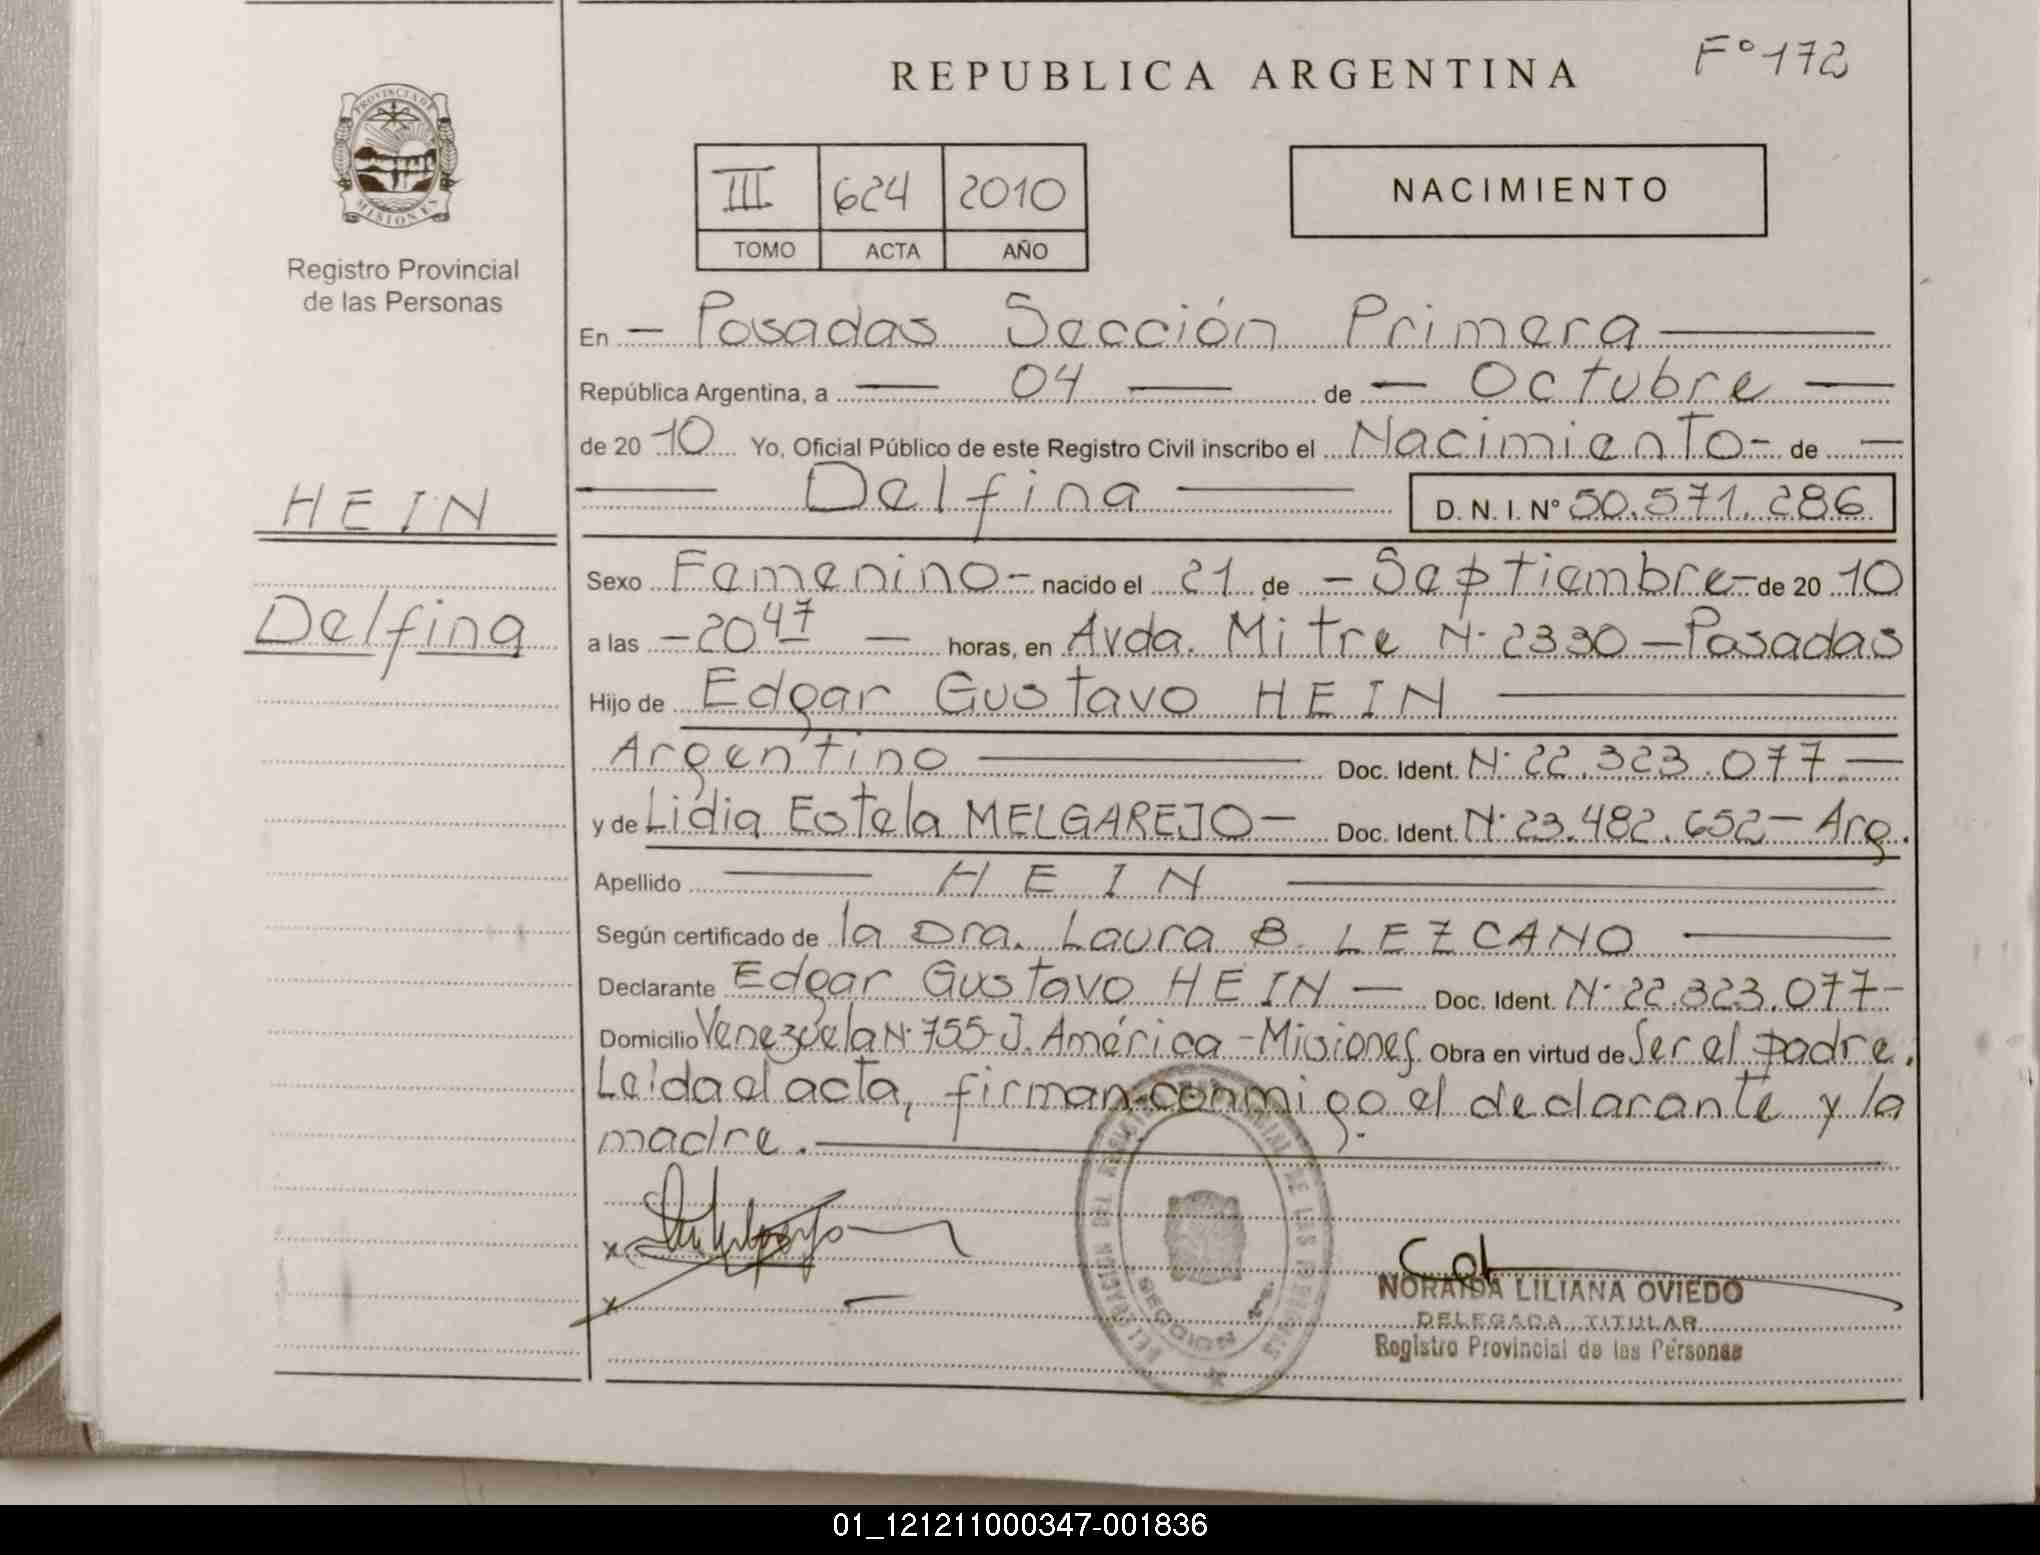 REPUBLICA ARGENTINA
F° 172
PROVINCIA DE MISIONES
Registro Provincial
de las Personas
III 624 2010
TOMO ACTA AÑO
NACIMIENTO
En — Posadas Sección Primera —
República Argentina, a — 04 — de — Octubre —
de 20 10 Yo, Oficial Público de este Registro Civil inscribo el Nacimiento - de —
— Delfina — D. N. I. N° 50.571.286
HEIN
Delfina
Sexo Femenino - nacido el 21 de - Septiembre - de 20 10
a las - 20 47 — horas, en Avda. Mitre N· 2330 - Posadas
Hijo de Edgar Gustavo HEIN —
Argentino — Doc. Ident. N· 22.323.077 —
y de Lidia Estela MELGAREJO — Doc. Ident. N· 23.482.652 - Arg.
Apellido — HEIN —
Según certificado de la Dra. Laura B. LEZCANO —
Declarante Edgar Gustavo HEIN — Doc. Ident. N· 22.323.077 -
Domicilio Venezuela N· 755- J. América - Misiones Obra en virtud de Ser el padre.
Leída el acta, firman conmigo el declarante y la
madre. —
x
x
SECCION 1ª
NORAIDA LILIANA OVIEDO
DELEGADA TITULAR
Registro Provincial de las Personas
01_121211000347-001836